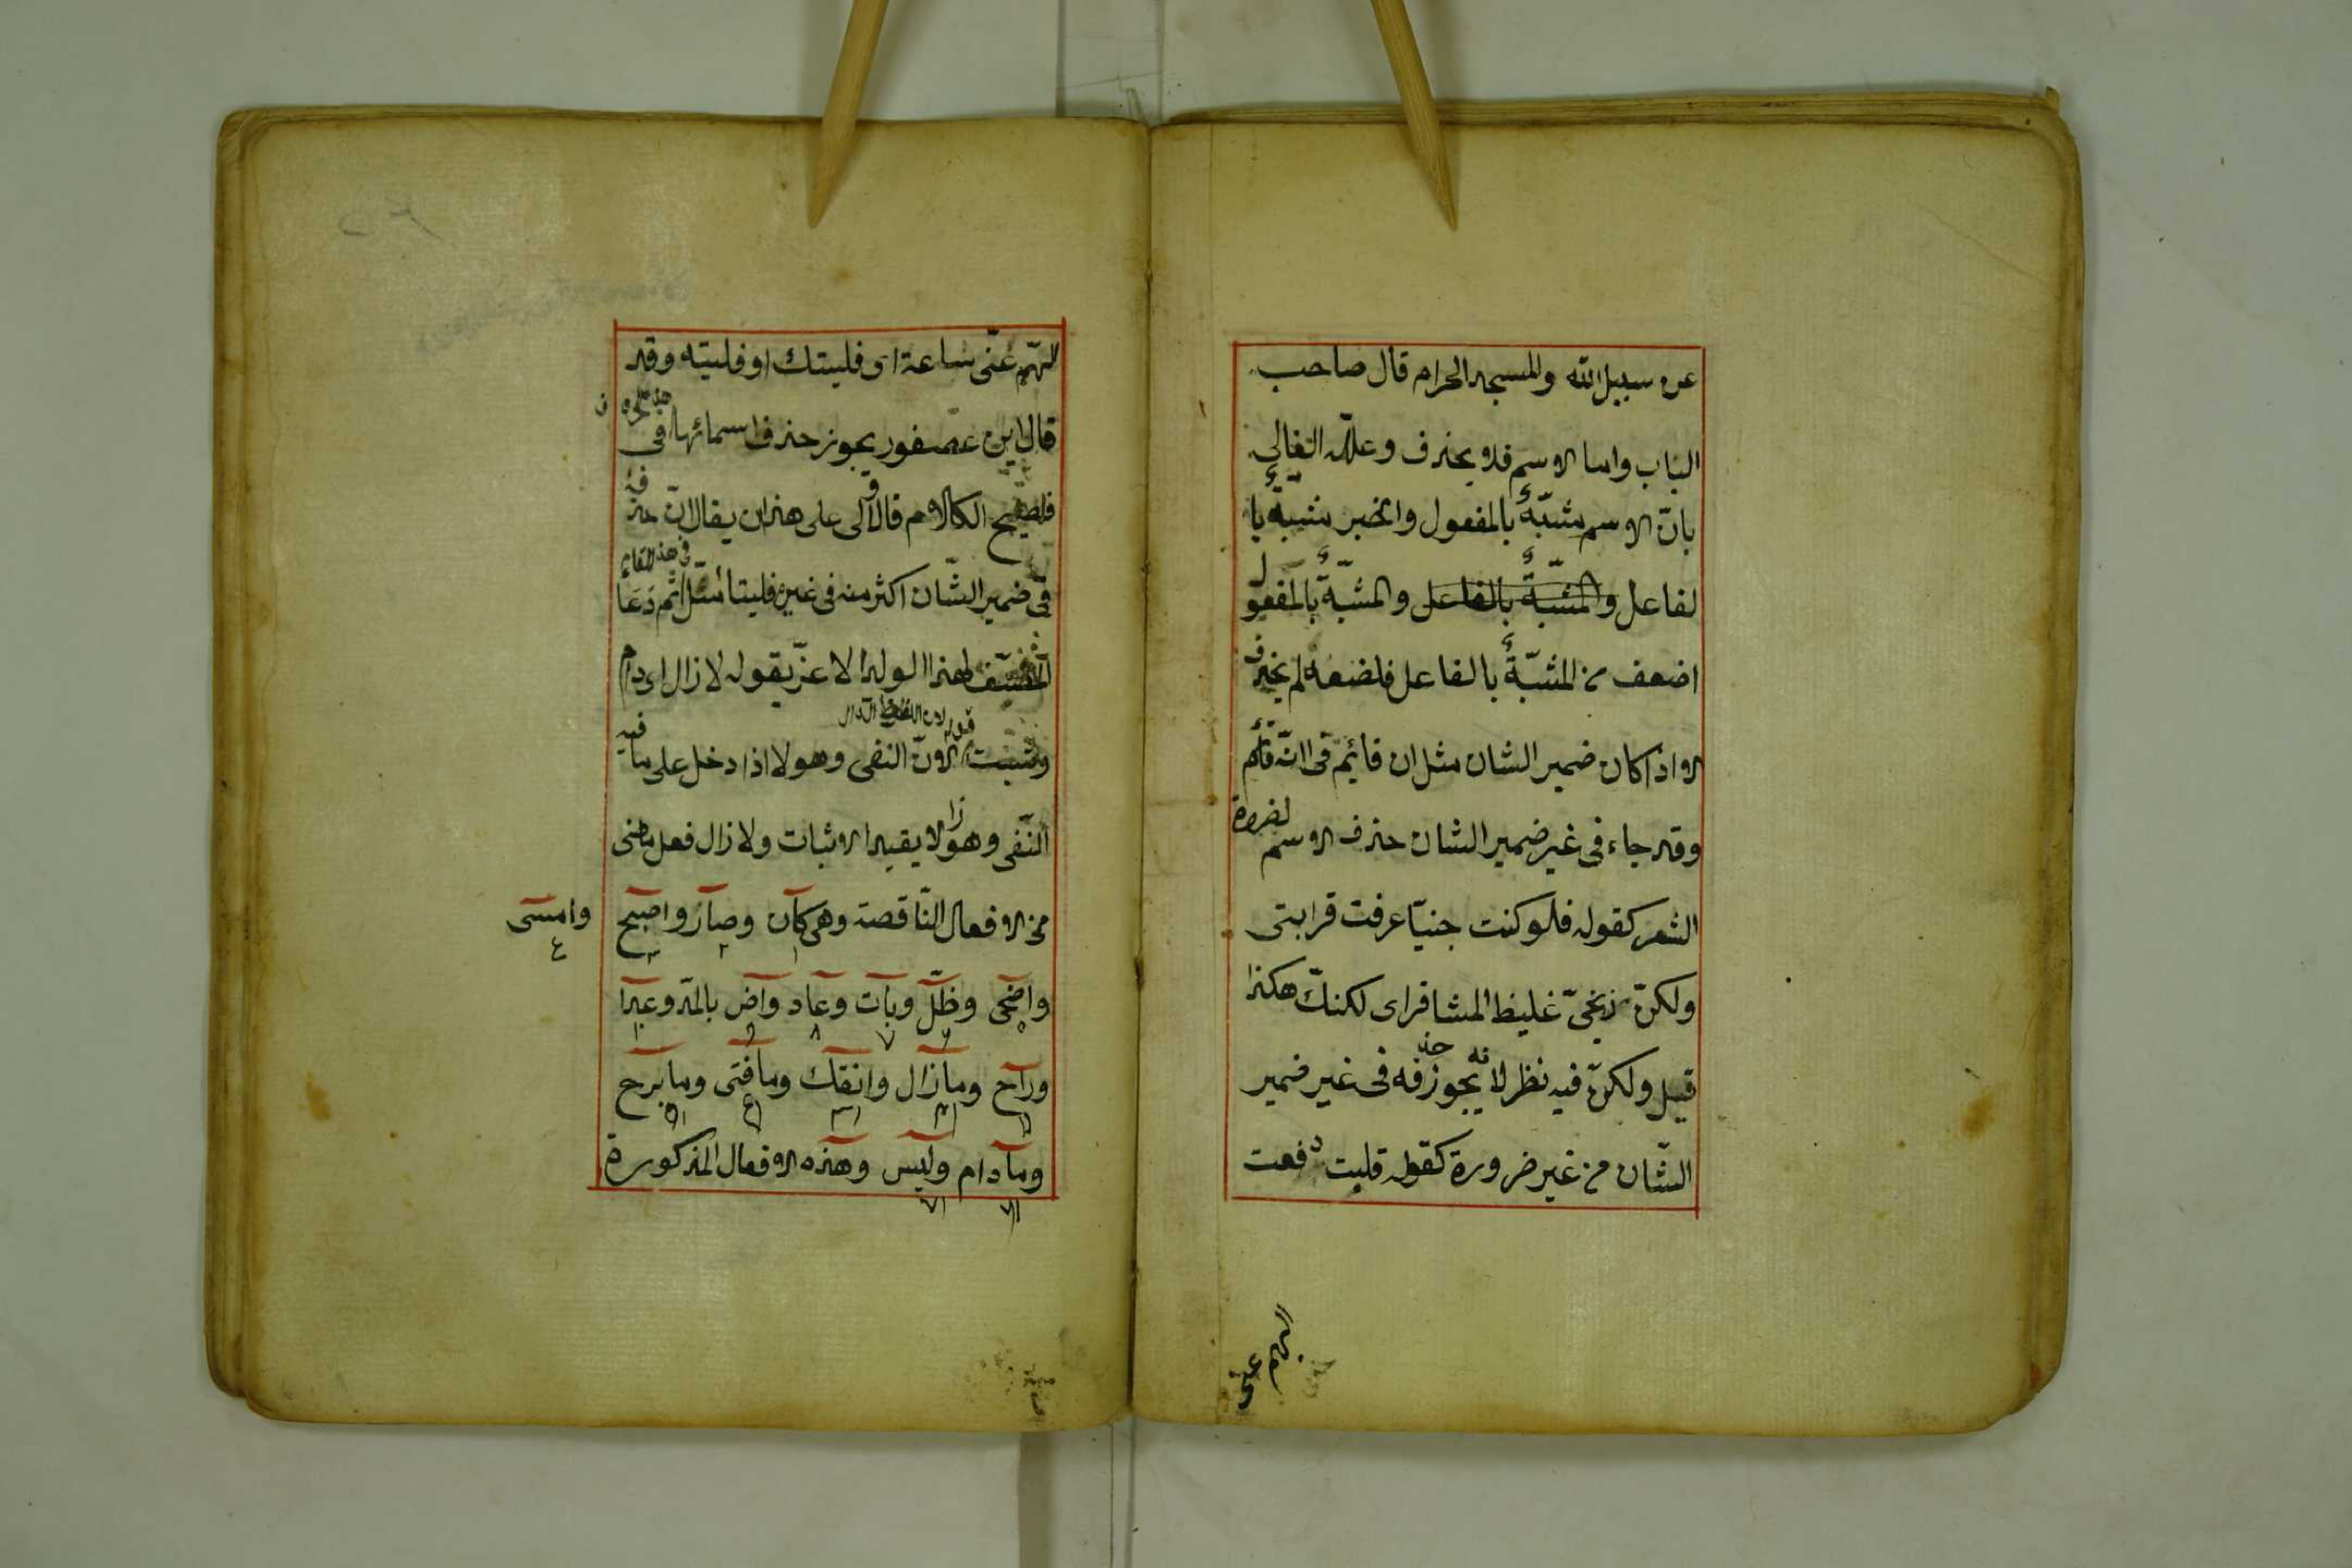 عن سبيل الله والمسجد الحرام قال صاحب
الباب واما الاسم فلا يحذف وعلله الفالى
بانّ الاسم مشبّه بالمفعول والخبر مشبّه با
لفاعل والمشبّه بالفاعل والمشبّه بالمفعول
اضعف من المشبّه بالفاعل فلضعفه لم يحذف
الا اذا كان ضمير الشان مثل ان قائم فى انّه قائم
وقد جاء فى غير ضمير الشان حذف الاسم لضرورة
الشعر كقوله فلو كنت جنيّا عرفت قرابتى
ولكنّ زنجىّ غليظ المشافر اى لكنك هكذا
قيل ولكنّ فيه نظر لانه يجوز حذفه فى غير ضمير
الشّان من غير ضرورة كقوله فليت دفعت
الهم عنّى
الهّم عنّى ساعة اى فليتك او فليته وقد
قال ابن عصفور يجوز حذف اسمائها فى
فصيح الكلام قال والاولى على هذا ان يقال انّ حذفه
فى ضمير الشّان اكثر منه فى غيره فليتأمّل ثم دعا
المصنّف لهذا الولد الاعزّ بقوله لا زال اى دام
قوله لان اللفظ الدال
وثبت لانّ النفى وهو لا اذا دخل على ما فيه
النّفى وهو زال يفيد الاثبات ولا زال فعل ماضى
من الافعال النّاقصة وهى كان وصار واصبح وامسى
١ ٢ ٣ ٤
واضحى وظلّ وبات وعاد وآض بالمدّ وغدا
٥ ٦ ٧ ٨ ٩ ١٠
وراح وما زال وانفك وما فتى وما برح
١١ ١٢ ١٣ ١٤ ١٥
وما دام وليس وهذه الافعال المذكورة
١٦ ١٧